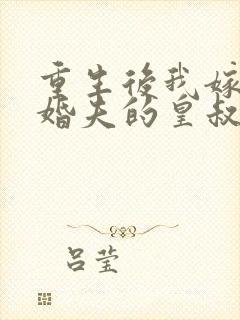 重生後我嫁
婚夫的皇叔
吕莹